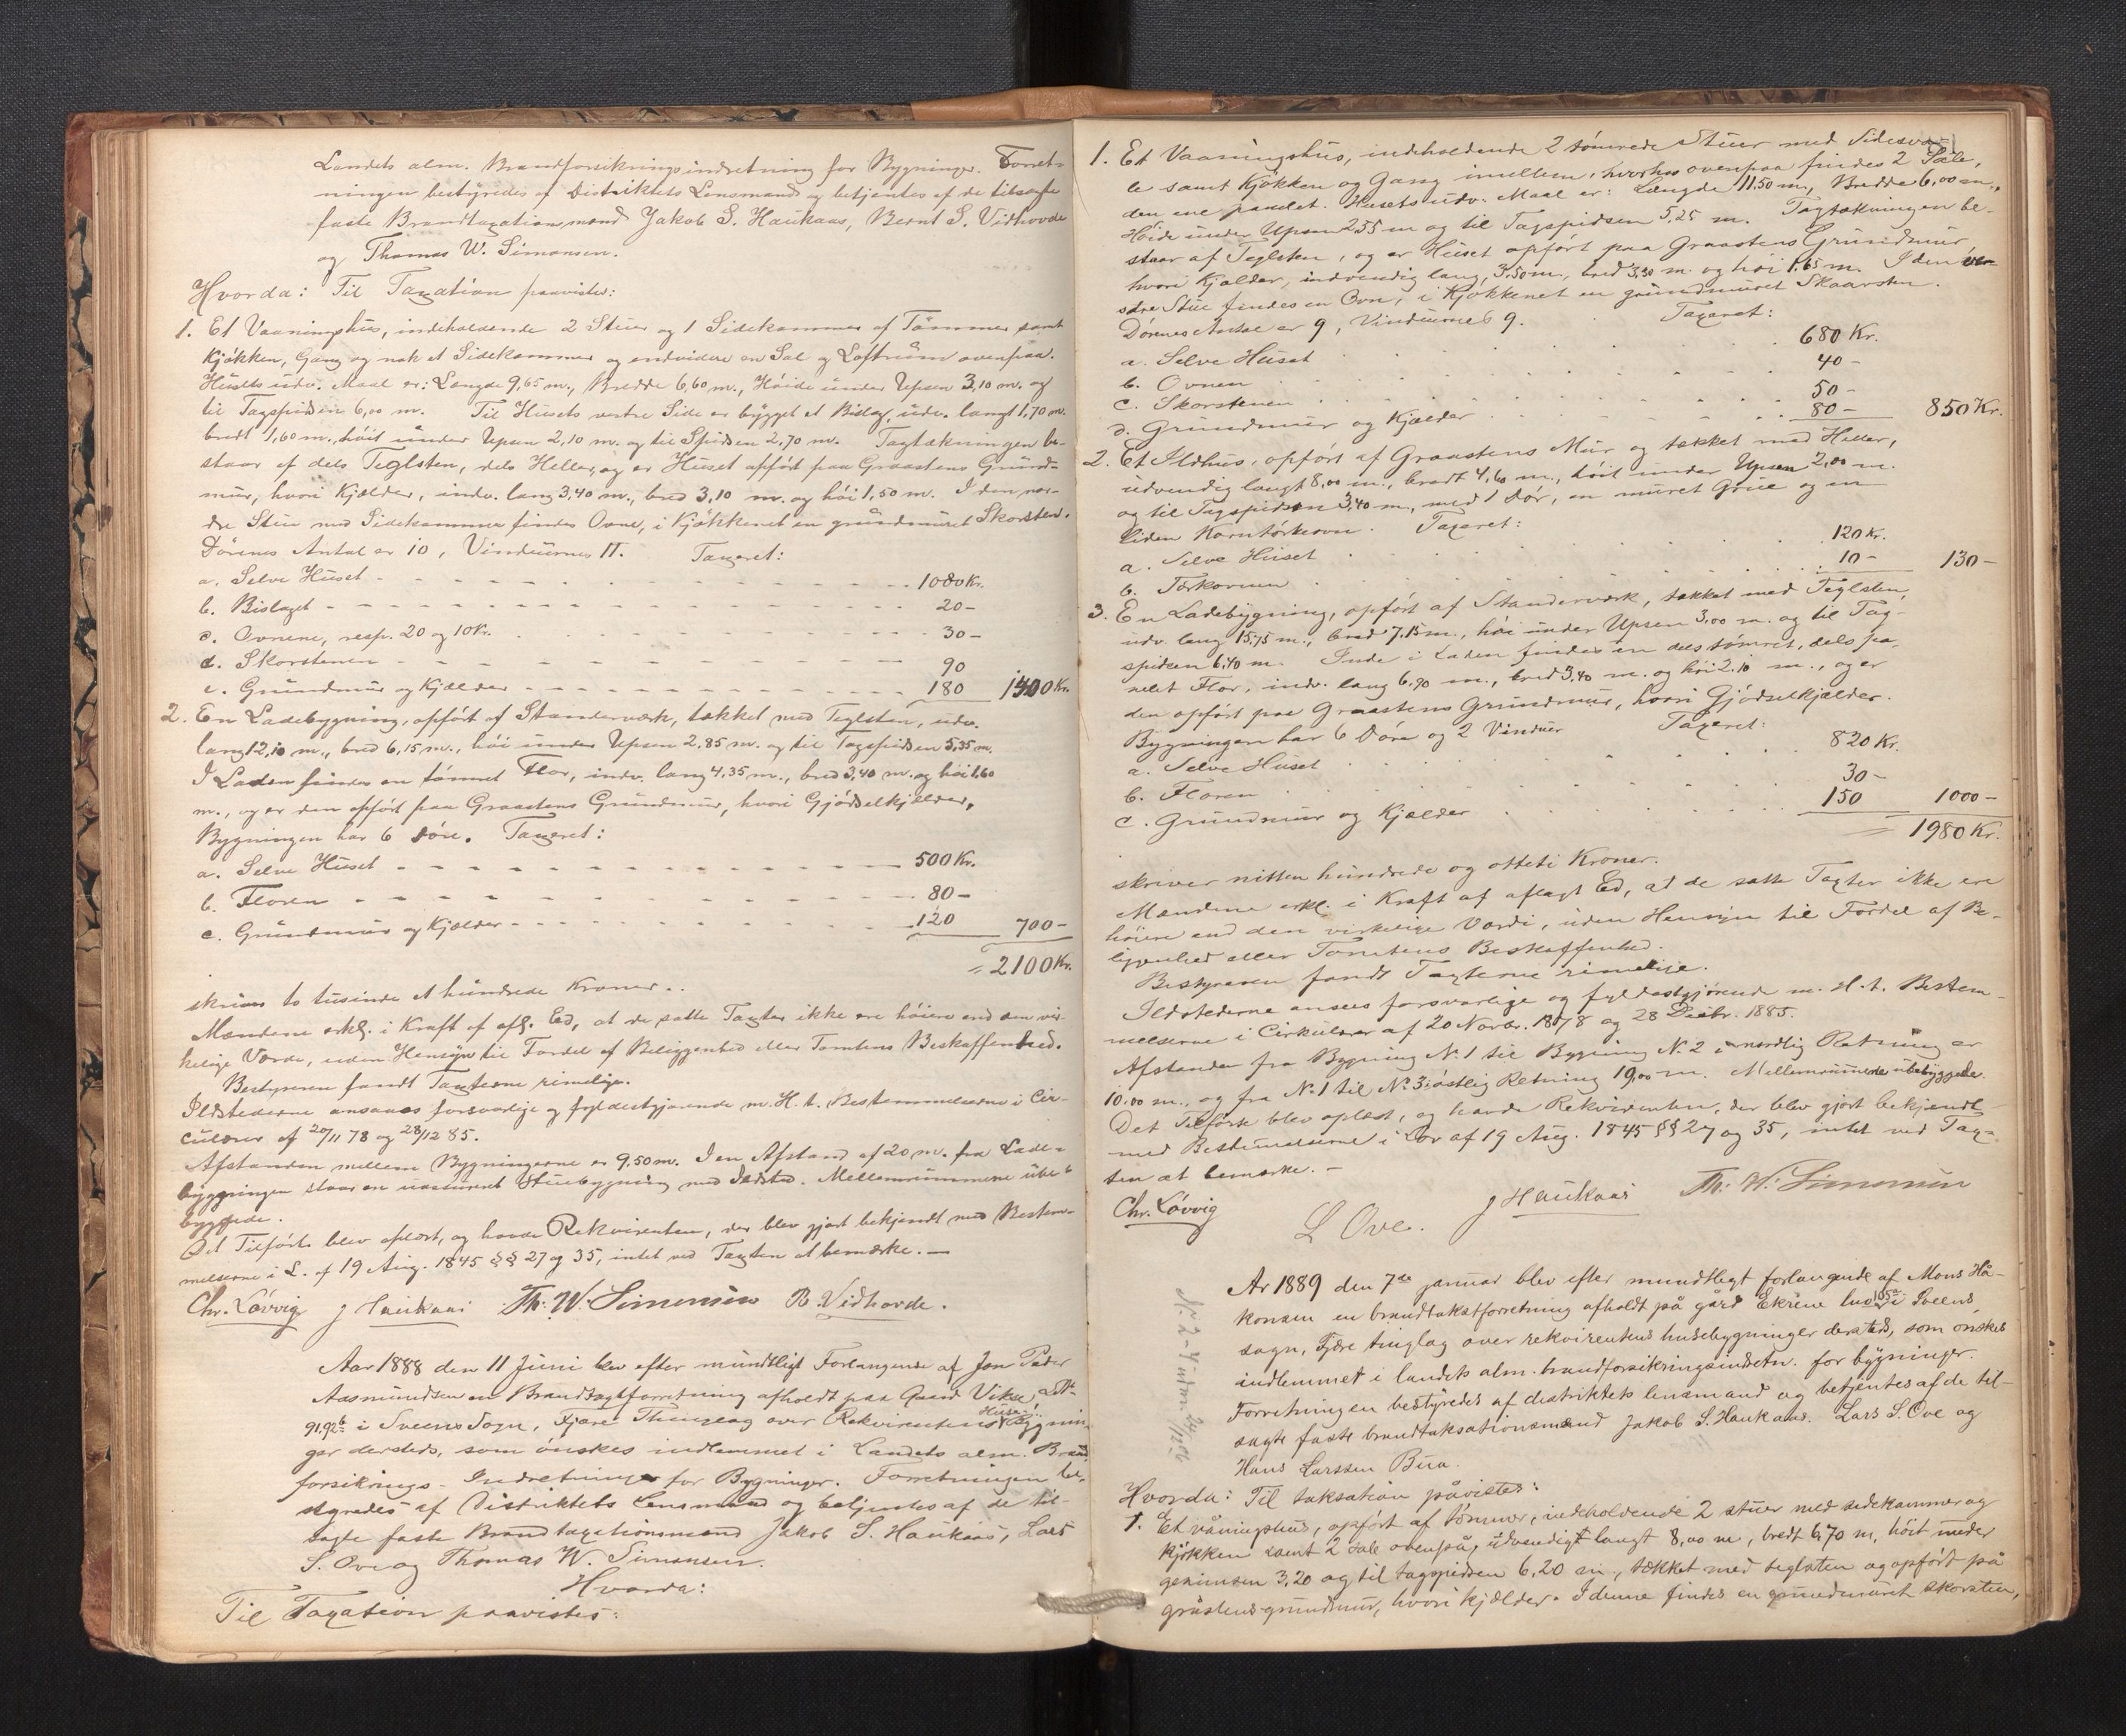 Landets alm. Brandforsikringsindretning for Bygninger. Forret-
ningen bestyredes af Distriktets Lensmand og betjentes af de tilsagte
faste Brandtaxationsmænd Jakob S. Haukaas, Bernt S. Vidhovde
og Thomas W. Simonsen.
Hvorda: Til Taxation paavistes:
1. Et Vaaningshus, indeholdende 2 Stuer og 1 Sidekammer af Tömmer samt
Kjökken, Gang og nok et Sidekammer og endvidere en Sal og Loftrum ovenpaa.
Husets udv. Maal er: Længde 9,65 m., Bredde 6,60 m., Höide under Upsen 3,10 m. og
til Tagspidsen 6,00 m. Til Husets vestre Side er bygget et Bislag, udv. langt 1,70 m.
bredt 1,60 m., höit under Upsen 2,10 m. og til Spidsen 2,70 m. Tagtækningen be-
staar af dels Teglsten, dels Heller, og er Huset opfört paa Graastens Grund-
mur, hvori Kjælder, indv. lang 3,40 m., bred 3,10 m. og höi 1,50 m. I den nor-
dre Stue med Sidekammer findes Ovne, i Kjökkenet en grundmuret Skorsten.
Dörenes Antal er 10, Vinduernes 11. Taxeret:
a. Selve Huset 1080 Kr.
b. Bislaget 20 -
c. Ovnene, resp. 20 og 10 Kr. 30 -
d. Skorstenen 90
e. Grundmur og Kjælder 180 1400 Kr.
2. En Ladebygning, opfört af Standerværk, tækket med Teglsten, udv.
lang 12,10 m., bred 6,15 m., höi under Upsen 2,85 m. og til Tagspidsen 5,35 m.
I Laden findes en tömret Flor, indv. lang 4,35 m., bred 3,40 m. og höi 1,60
m., og er den opfört paa Graastens Grundmur, hvori Gjödselkjelder.
Bygningen har 6 Döre. Taxeret:
a. Selve Huset 500 Kr.
b. Floren 80 -
c. Grundmur og Kjælder 120 700 -
= 2100 Kr.
skriver to tusinde et hundrede Kroner.
Mændene erkl. i Kraft af afl. Ed, at de satte Taxter ikke ere höiere end den vir-
kelige Værde, uden Hensyn til Fordel af Beliggenhed eller Tomtens Beskaffenhed.
Bestyreren fandt Taxterne rimelige.
Ildstederne ansaaes forsvarlige og fyldestgjörende m. H. t. Bestemmelserne i Cir-
culærer af 20/11 78 og 28/12 85.
Afstanden mellem Bygningerne er 9,50 m. I en Afstand af 20 m. fra Lade-
bygningen staar en uassureret Stuebygning med Ildsted. Mellemrummene ube-
byggede.
Det Tilförte blev oplæst, og havde Rekvirenten, der blev gjort bekjendt med Bestem-
melserne i L. af 19 Aug. 1845 §§ 27 og 35, intet ved Taxten at bemærke. —
Chr. Lövvig J Haukaas Th: W. Simonsen B Vidhovde.
Aar 1888 den 11 Juni blev efter mundtligt Forlangende af Jon Peder
Aasmundsen en Brandtaxtforretning afholdt paa Gaard Vikse,
91,92b i Sveens Sogn, Fjære Thinglag over Rekvirentens Huse Bygnin-
ger dersteds, som önskes indlemmet i Landets alm. Brand-
forsikrings-Indretninger for Bygninger. Forretningen be-
styredes af Distriktets Lensmand og betjentes af de til-
sagte faste Brandtaxationsmænd Jakob S. Haukaas, Lars
S. Ove og Thomas W. Simonsen.
Hvorda:
Til Taxation paavistes:
1. Et Vaaningshus, indeholdende 2 tömrede Stuer med Sidesva-
le samt Kjökken og Gang imellem, hvorhos ovenpaa findes 2 Sale,
den ene panelet. Husets udv. Maal er: Længde 11,50 m., Bredde 6,00 m.,
Höide under Upsen 2,55 m og til Tagspidsen 5,25 m. Tagtækningen be-
staar af Teglsten, og er Huset opfört paa Graastens Grundmur
hvori Kjælder, indvendig lang, 3,50 m., bred 3,30 m. og höi 1,65 m. I den ve-
stre Stue findes en Ovn, i Kjökkenet en grundmuret Skaarsten.
Dörenes Antal er 9, Vinduernes 9. Taxeret:
a. Selve Huset 680 Kr.
b. Ovnen 40 -
c. Skorstenen 50 -
d. Grundmur og Kjælder 80 - 850 Kr.
2. Et Ildhus, opfört af Graastens Mur og tækket med Heller,
udvendig langt 8,00 m., bredt 4,60 m., höit under Upsen 2,00 m.
og til Tagspidsen 3,40 m., med 1 Dör, en muret Grue og en
liden Korntörkeovn. Taxeret:
a. Selve Huset 120 Kr.
b. Törkovnen 10 - 130 -
3. En Ladebygning, opfört af Standerværk, tækket med Teglsten,
udv. lang 15,75 m., bred 7,15 m., höi under Upsen 3,00 m. og til Tag-
spidsen 6,40 m. Inde i Laden findes en dels tömret, dels pa-
nelet Flor, indv. lang 6,90 m., bred 3,40 m. og höi 2,10 m., og er
den opfört paa Graastens Grundmur, hvori Gjödselkjælder.
Bygningen har 6 Döre og 2 Vinduer Taxeret:
a. Selve Huset 820 Kr.
b. Floren 30 -
c. Grundmur og Kjælder 150 1000 -
= 1980 Kr.
skriver nitten hundrede og otteti Kroner.
Mændene erkl. i Kraft af aflagt Ed, at de satte Taxter ikke ere
höiere end den virkelige Værdi, uden Hensyn til Fordel af Be-
liggenhed eller Tomtens Beskaffenhed.
Bestyreren fandt Taxterne rimelige.
Ildstederne ansees forsvarlige og fyldestgjörende m. H. t. Bestem-
melserne i Cirkulærer af 20 Novbr. 1878 og 28 Decbr. 1885.
Afstanden fra Bygning No. 1 til Bygning No. 2 i nordlig Retning er
10.00 m., og fra No. 1 til No. 3 i östlig Retning 19,00 m. Mellemrummene ubebyggede.
Det Tilförte blev oplæst, og havde Rekvirenten, der blev gjort bekjendt
med Bestemmelserne i Lov af 19 Aug. 1845 §§ 27 og 35, intet ved Tax-
ten at bemærke. -
Chr. Lövvig L Ove. J Haukaas Th: W. Simonsen
Ar 1889 den 7de januar blev efter mundtlegt forlangende af Mons Hå-
konsen en brandtakstforretning afholdt på gård Ekrene i Sveens
sogn, Fjære tinglag over rekvirentens husebygninger dersteds, som önskes
indlemmet i landets alm. brandforsikringsindretn. for bygninger.
Forretningen bestyredes af distriktets lensmand og betjentes af de til-
sagte faste brandtaksationsmænd Jakob S. Haukaas. Lars S. Ove og
Hans Larssen Bua.
Hvorda: Til taksation påvistes:
1. Et våningshus, opfört af tömmer, indeholdende 2 stuer med sidekammer og
kjökken samt 2 sale ovenpå, udvendigt langt 8,00 m, bredt 6,70 m, höit under
gesimsen 3,20 og til tagspidsen 6,20 m, tækket med teglsten og opfört på
gråstensgrundmur, hvori kjælder. I denne findes en grundmuret skorsten,